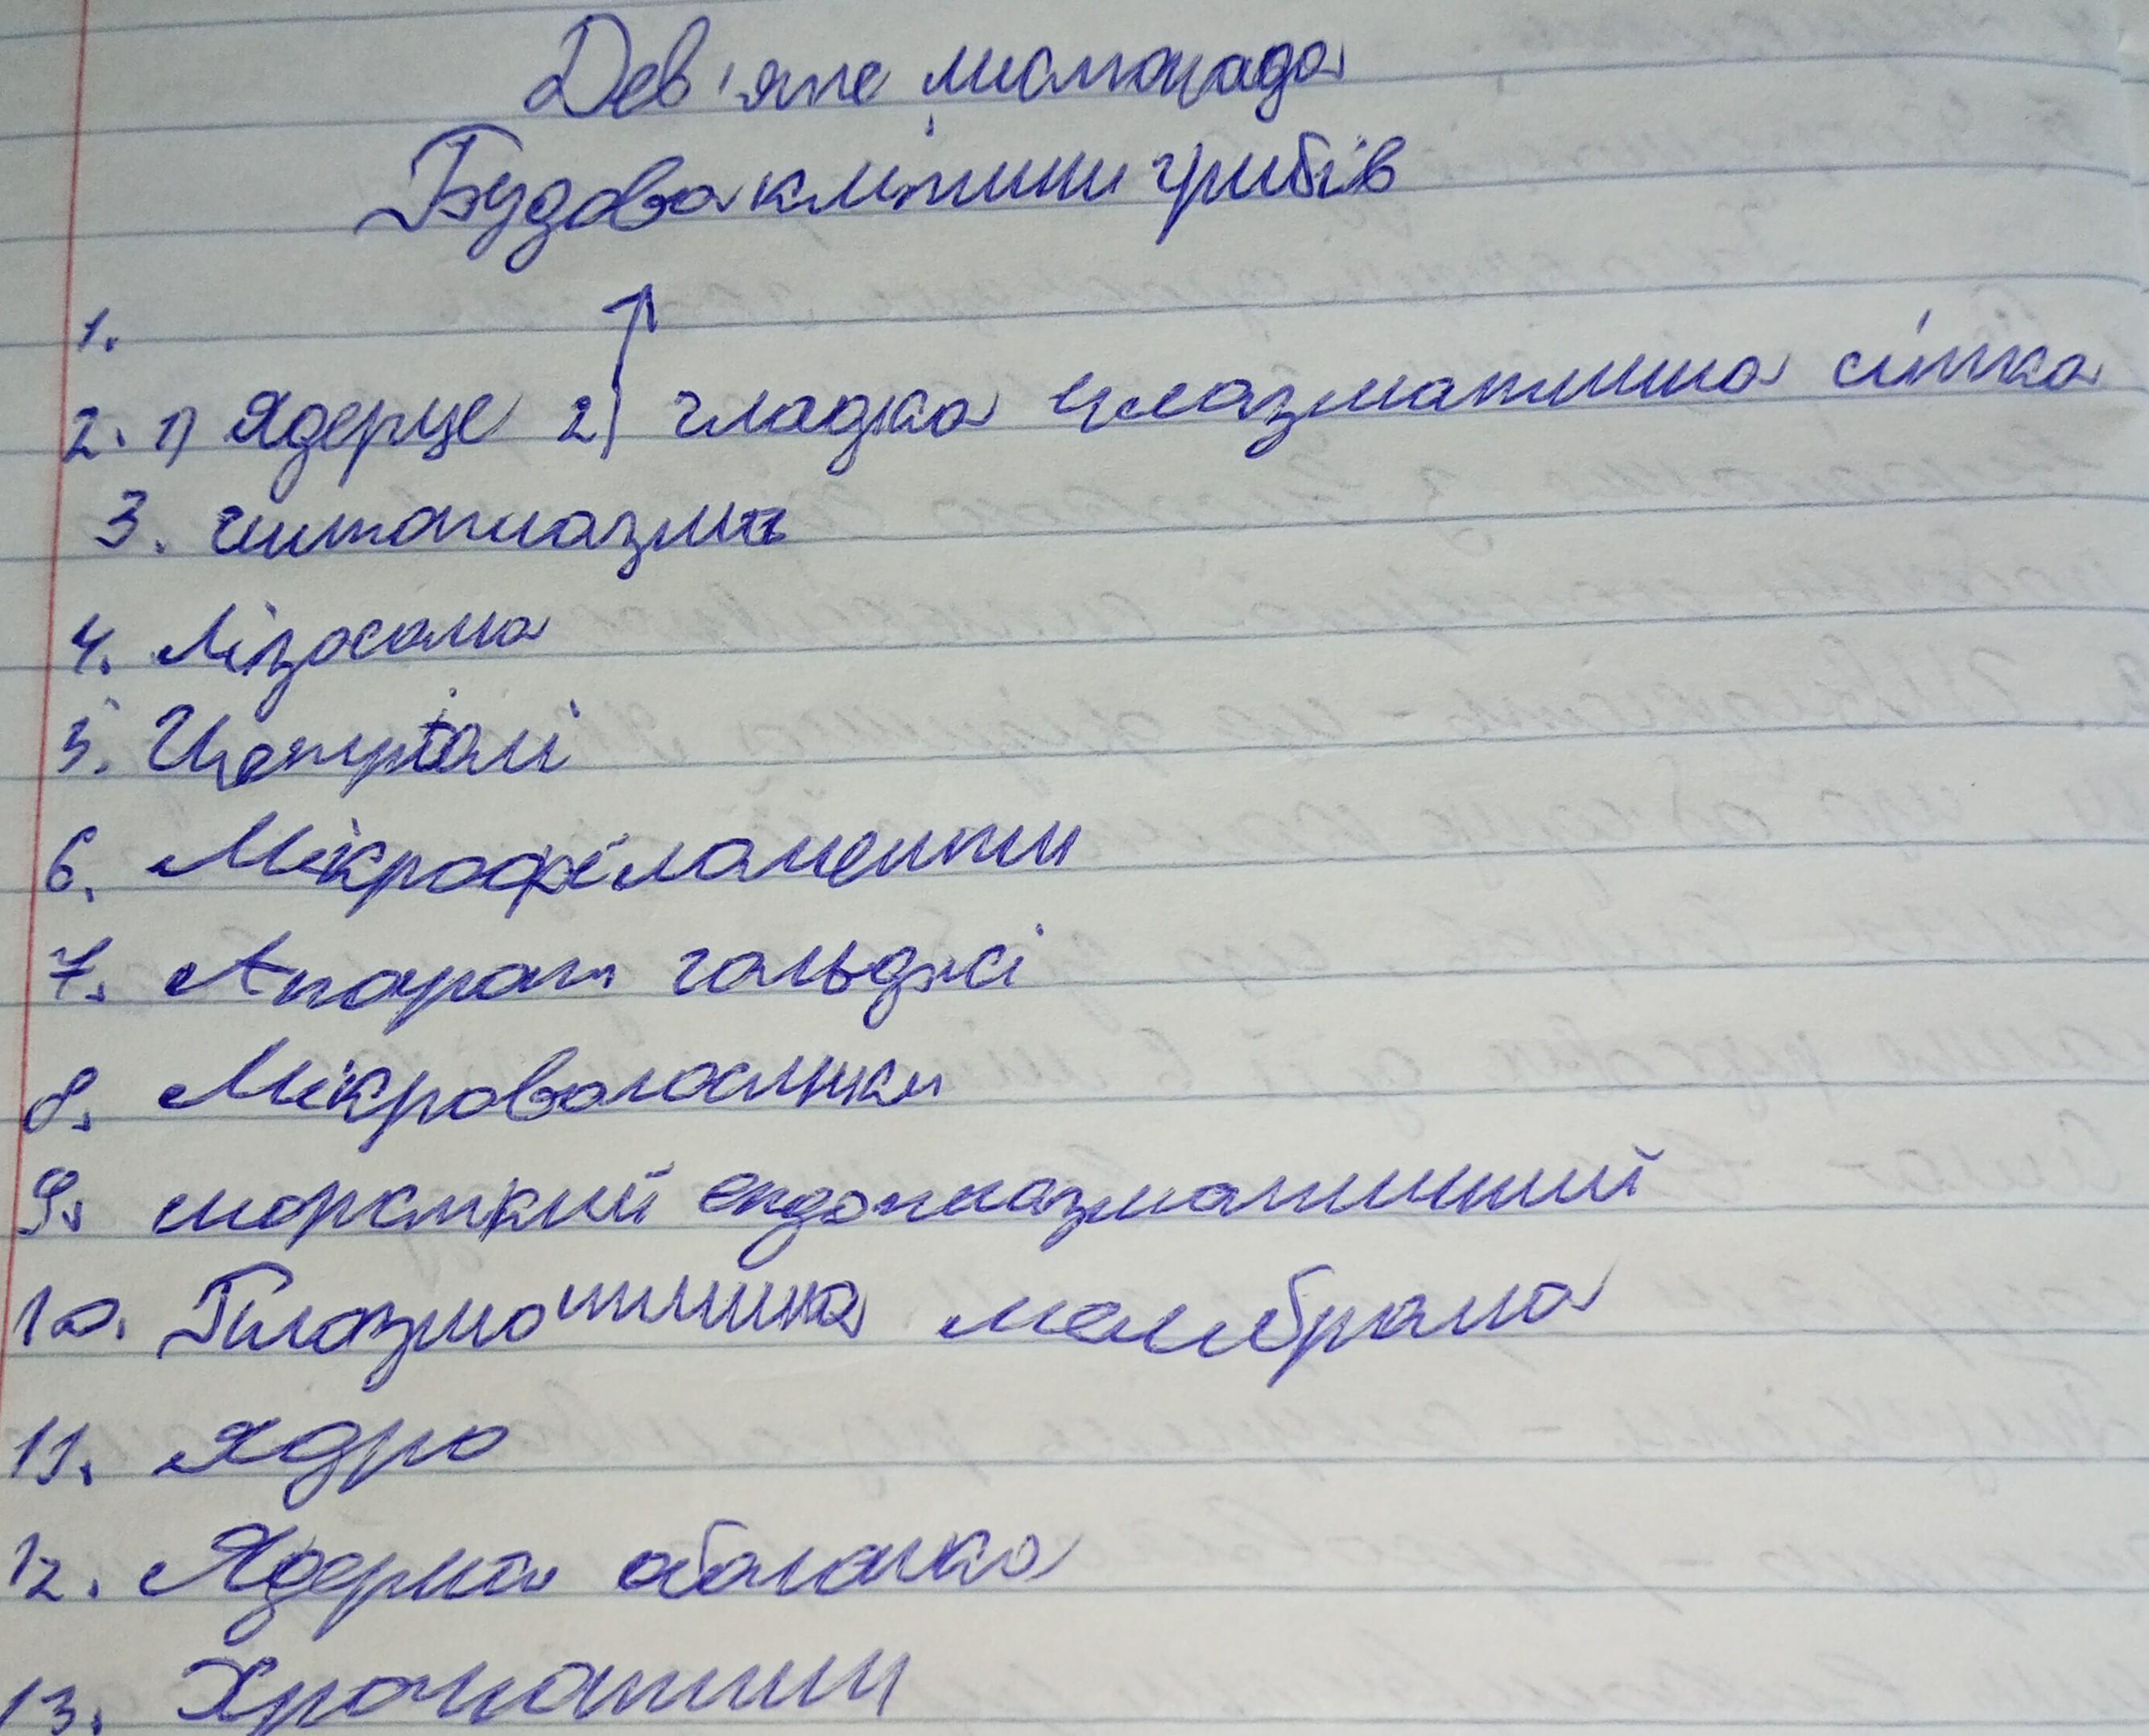 Дев'яте листопада
Будова клітини грибів
1.
2. 1) Ядерце 2) гладка плазматична сітка
3. цитоплазма
4. Лізосома
5. Центріолі
6. Мікрофіламенти
7. Апарат гольджі
8. Мікроволосинки
9. шорсткий ендоплазматичний
10. Плазматична мембрана
11. Ядро
12. Ядерна оболонка
13. Хроматин